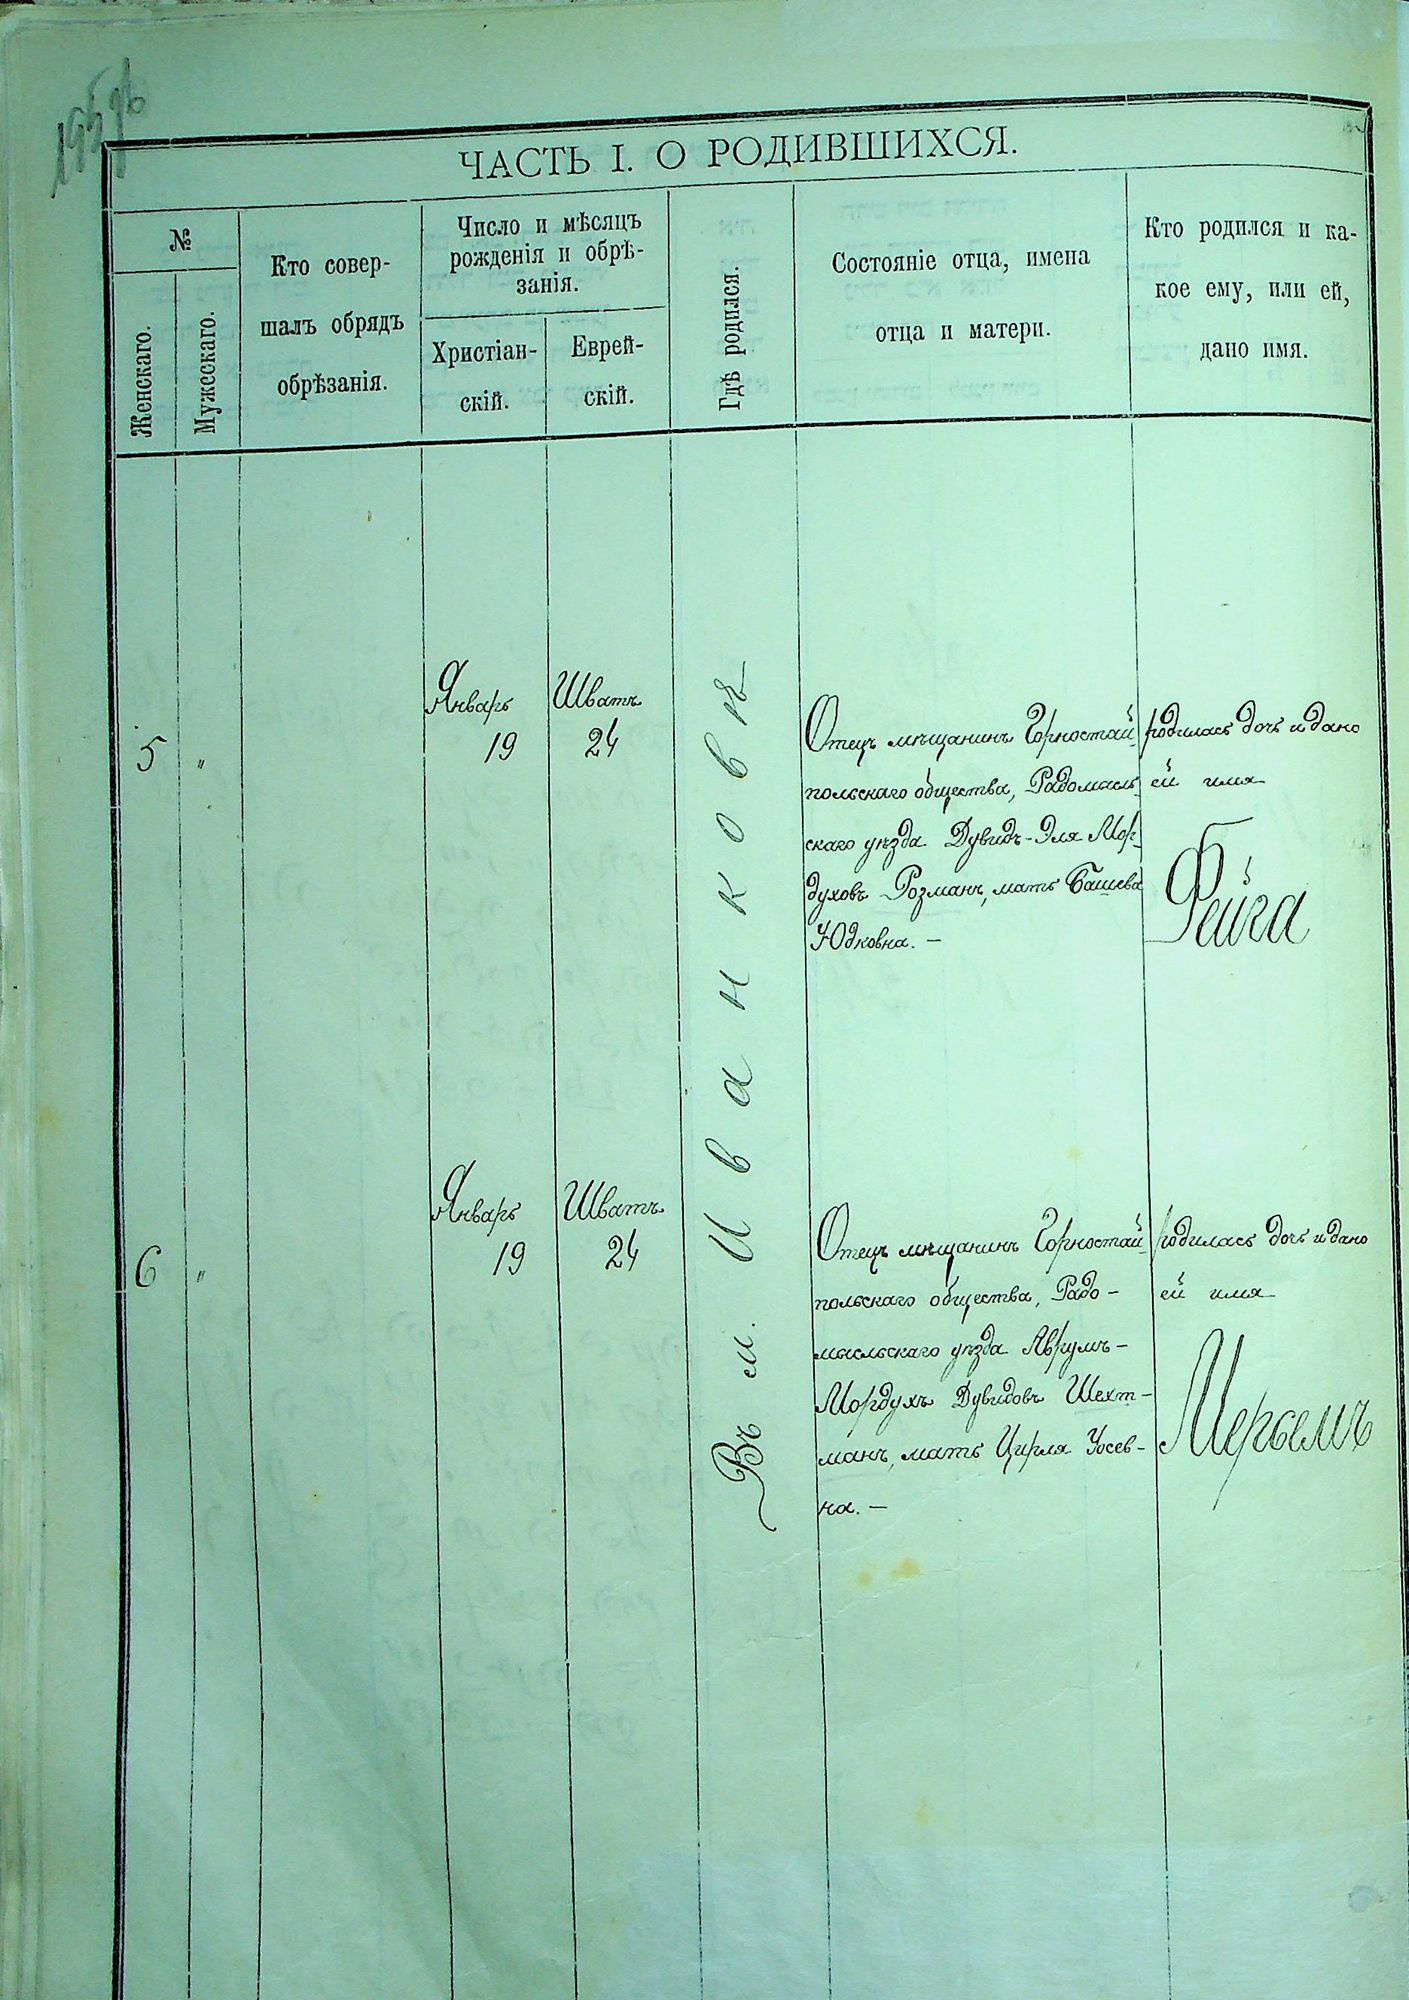 ЧАСТЬ I. О РОДИВШИХСЯ.
№
Женскаго.
Мужескаго.
Кто совер-
шалъ обрядъ
обрѣзанія.
Число и мѣсяцъ
рожденія и обрѣ-
занія.
Христіан-
скій.
Еврей-
скій.
Гдѣ родился.
Состояніе отца, имена
отца и матери.
Кто родился и ка-
кое ему, или ей,
дано имя.
5 „
Январь
19
Шватъ
24
Въ м. Иванковѣ
Отецъ мѣщанинъ Горностай-
польскаго общества, Радомысль-
скаго уѣзда Дувидъ-Эля Мор-
духовъ Розманъ, мать Башева
Юдковна. —
родилась дочь и дано
ей имя
Фейга
6 „
Январь
19
Шватъ
24
Отецъ мѣщанинъ Горностай-
польскаго общества, Радо-
мысльскаго уѣзда Аврумъ-
Мордухъ Дувидовъ Шехт-
манъ, мать Цирля Уосев-
на. —
родилась дочь и дано
ей имя
Мерьемъ